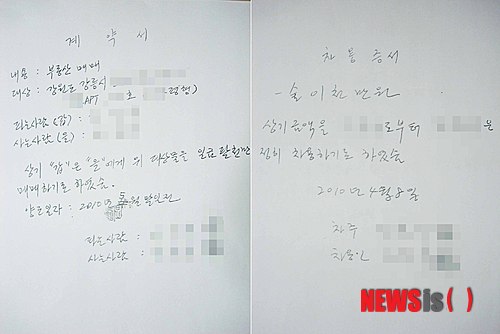 계 약 서
내용 : 부동산 매매
대상 : 강원도 강릉시
APT 호
파는사람 (갑) :
사는사람 (을) :
상기 "갑"은 "을"에게 위 대상물을 일금 팔천만
매매하기로 하였음.
2010년 월 말일전
파는사람 :
사는사람 :
차 용 증 서
일금이천만원
상기금액을 로부터
전히 차용하기로 하였음
2010년 4월 8일
차주
차용인
NEWSis( )